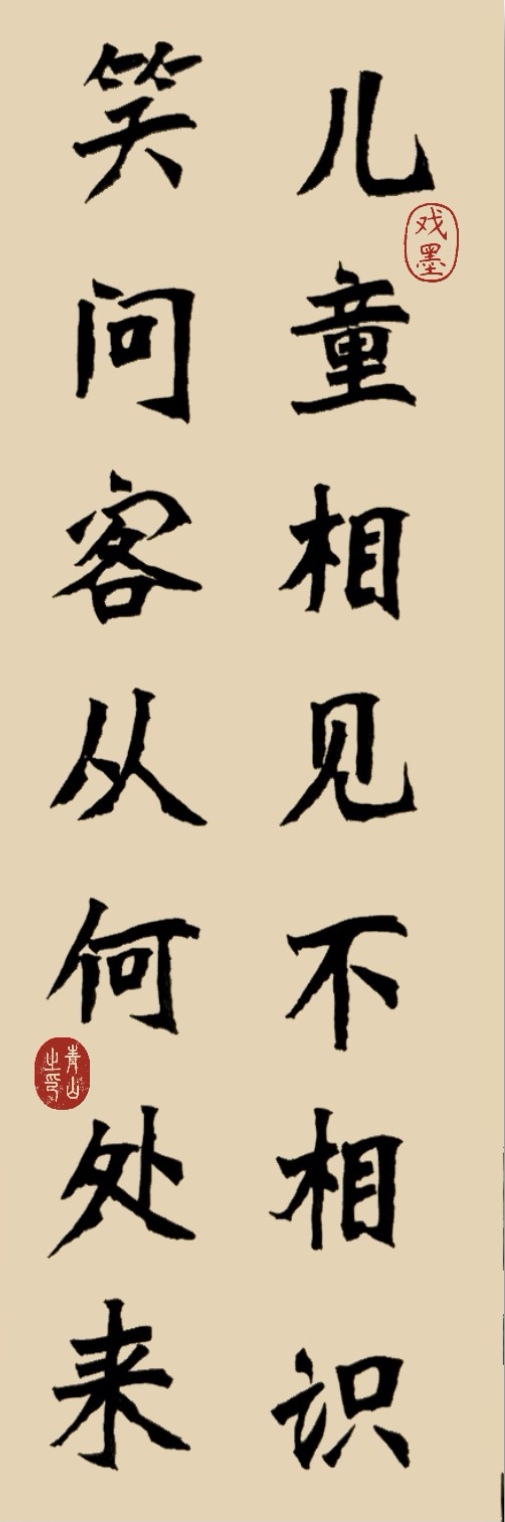 儿童相见不相识
戏墨
笑问客从何处来
青山